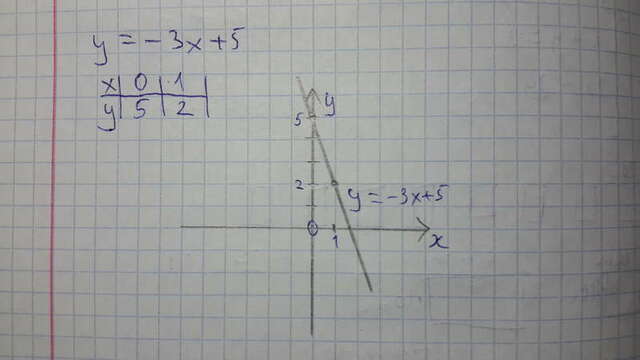 y = -3x+5
x | 0 | 1 |
y | 5 | 2 |
y
5
2
y = -3x+5
0
1
x